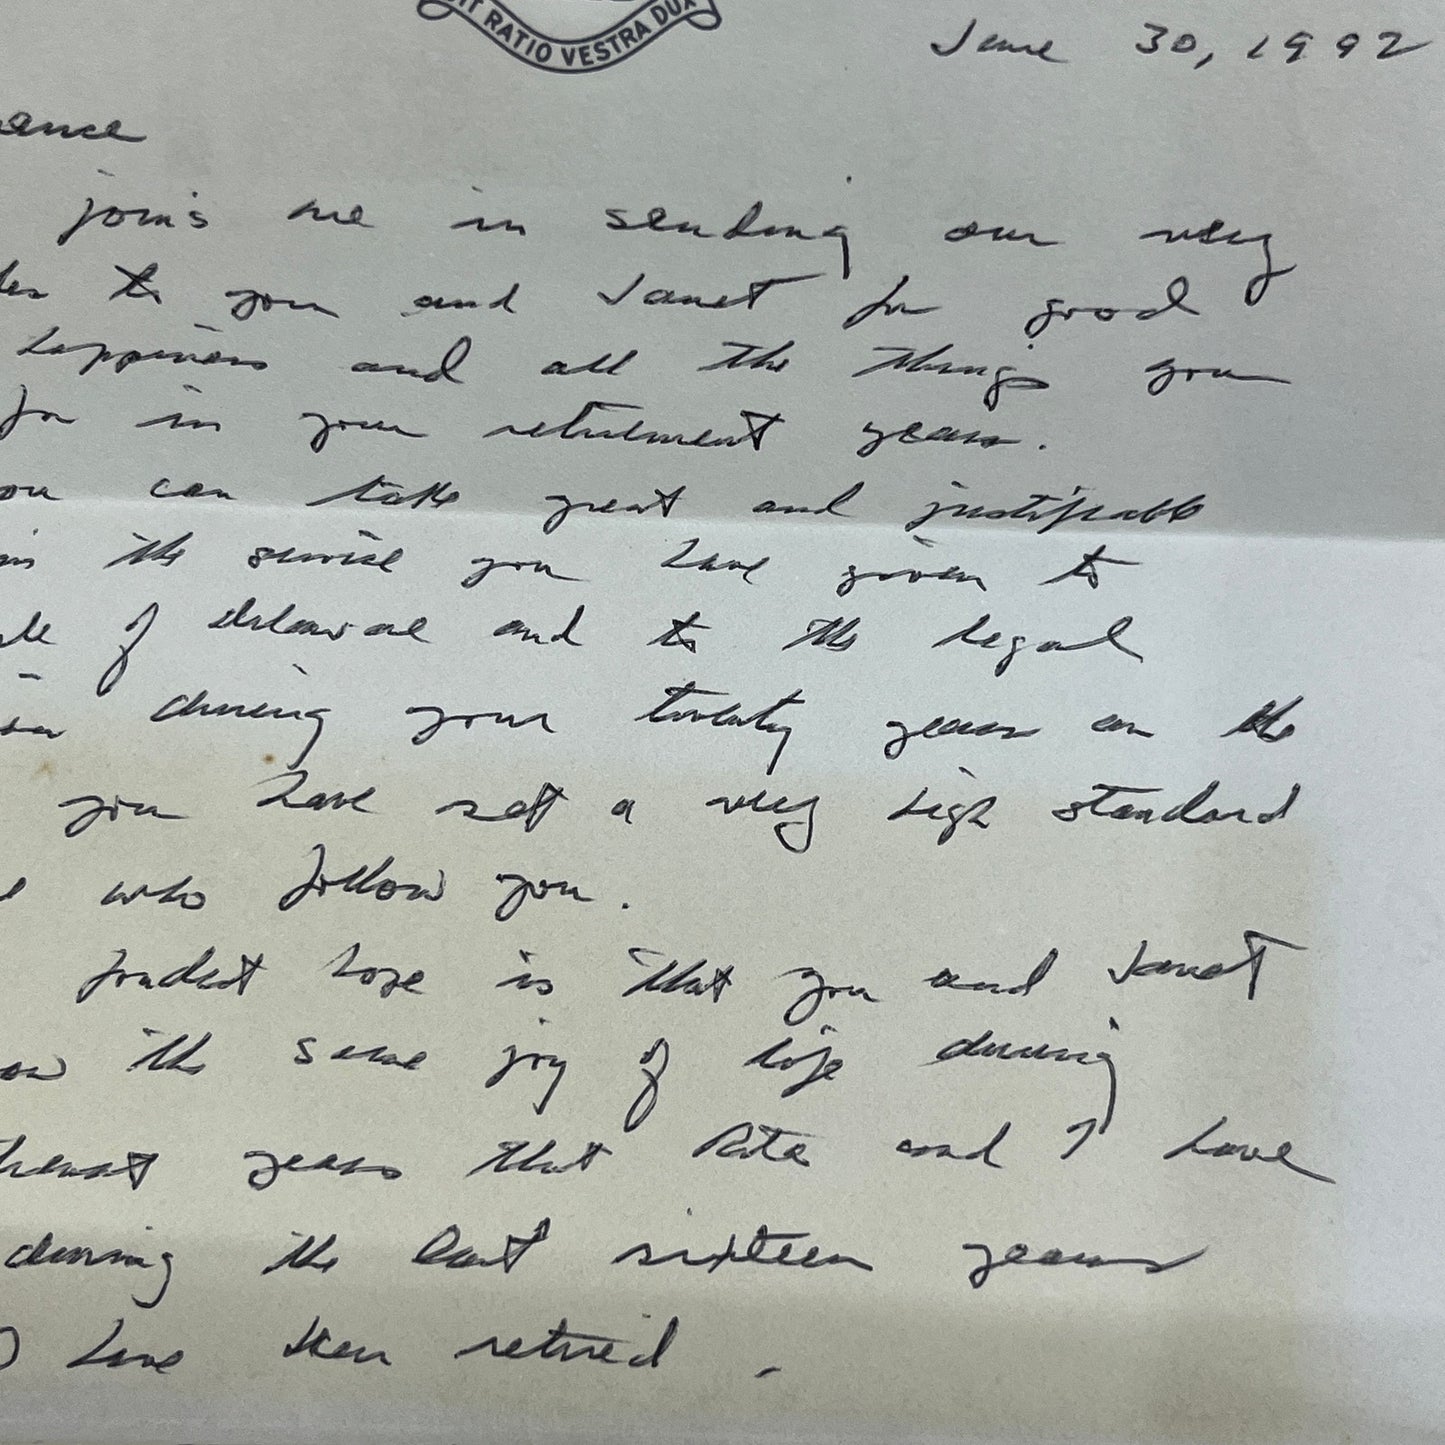 IT RATIO VESTRA DUX
June 30, 1992
ence
joins me in sending our very
to you and Janet for good
happiness and all the things you
for in your retirement years.
ou can take great and justifiable
in the service you have given to
of Delaware and to the legal
during your twenty years on the
you have set a very high standard
who follow you.
fondest hope is that you and Janet
ow the same joy of life during
years that Rita and I have
during the last sixteen years
I have been retired.